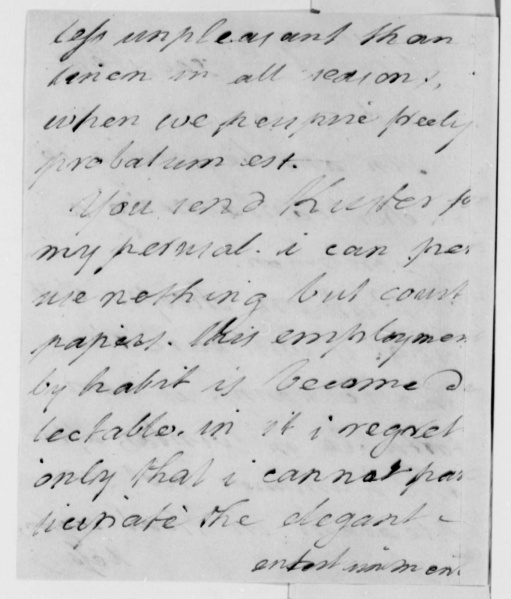 less unpleasant than
linen in all seasons,
when we perspire freely
probatum est.
You send Kuster for
my perusal. i can per
use nothing but court
papers. this employmen
by habit is become d
lectable. in it i regret
only that i cannot par
ticipate the elegant
entertainmen